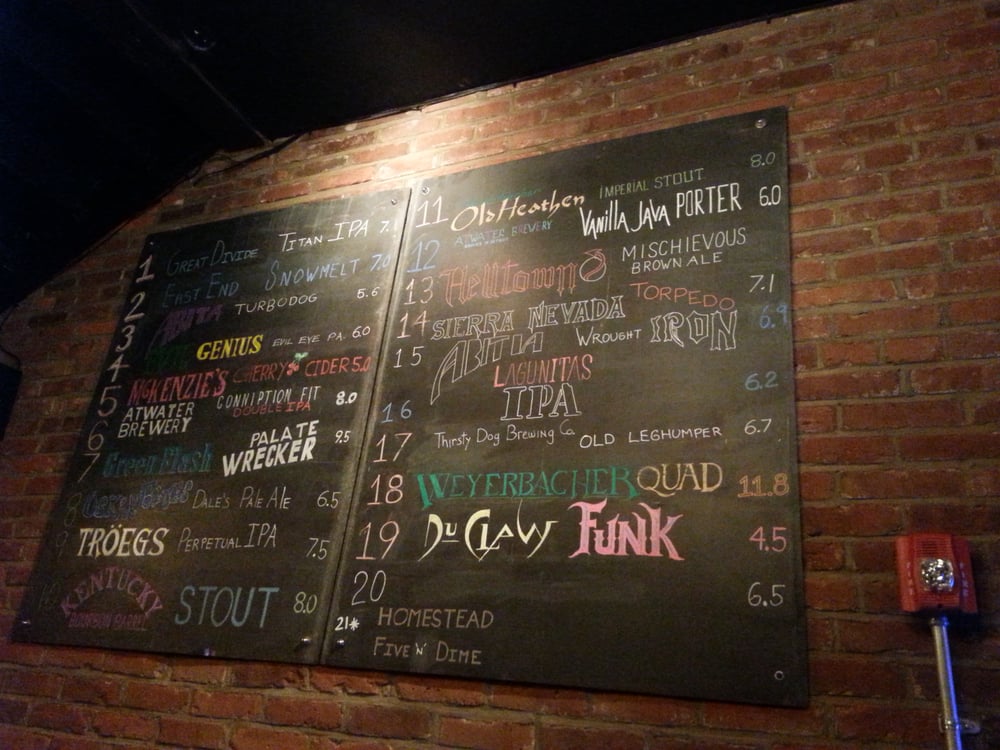 1 GREAT DIVIDE TITAN IPA 7.1
2 EAST END SNOWMELT 7.0
3 ABITA TURBODOG 5.6
4 GENIUS EVIL EYE PA. 6.0
5 MCKENZIE'S CHERRY CIDER 5.0
6 ATWATER BREWERY CONNIPTION FIT DOUBLE IPA 8.0
7 Green Flash PALATE WRECKER 9.5
8 DALE'S PALE ALE 6.5
9 TRÖEGS PERPETUAL IPA 7.5
10 KENTUCKY BOURBON BARREL STOUT 8.0
11 Old Heathen IMPERIAL STOUT 8.0
12 ATWATER BREVERY VANILLA JAVA PORTER 6.0
13 Helltown MISCHIEVOUS BROWN ALE
14 SIERRA NEVADA TORPEDO 7.1
15 ABITIA WROUGHT IRON 6.9
16 LAGUNITAS IPA 6.2
17 Thirsty Dog Brewing Co. OLD LEGHUMPER 6.7
18 WEYERBACHER QUAD 11.8
19 DUCLAW FUNK 4.5
20 6.5
21* HOMESTEAD
FIVE N' DIME